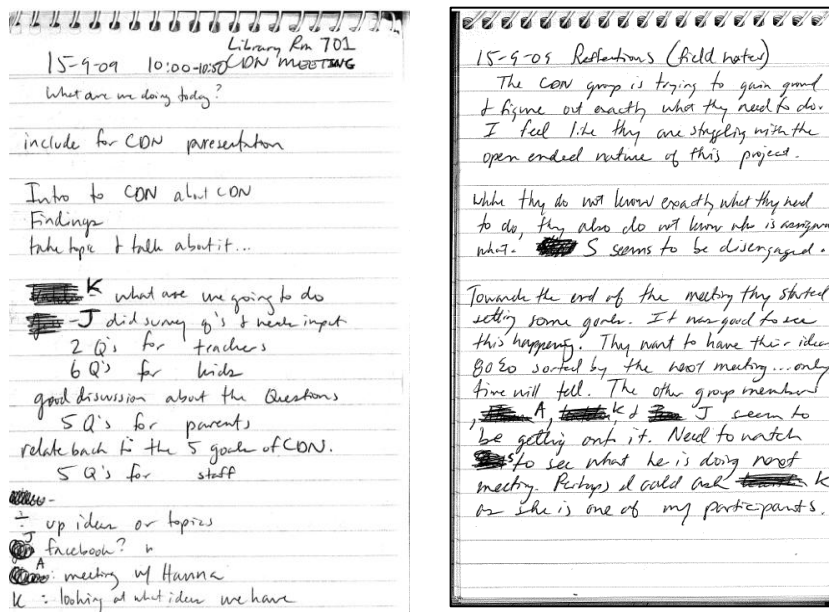 Library Rm 701
15-9-09 10:00-10:50 CDN MEETING
What are we doing today?
include for CDN presentation
Intro to CDN about CDN
Findings
take topic & talk about it...
K - what are we going to do
- J did survey q's & needs input
2 Q's for teachers
6 Q's for kids
good discussion about the Questions
5 Q's for parents
relate back to the 5 goals of CDN.
5 Q's for staff
-
÷ up ideas or topics
J facebook?
A : meeting w/ Hanna
K : looking at what ideas we have
15-9-09 Reflections (field notes)
The CDN group is trying to gain ground
& figure out exactly what they need to do.
I feel like they are struggling with the
open ended nature of this project.
While they do not know exactly what they need
to do, they also do not know who is assigned
what. S seems to be disengaged.
Towards the end of the meeting they started
setting some goals. It was good to see
this happening. They want to have their ideas
sorted by the next meeting... only
time will tell. The other group members
, A, K & J seem to
be getting onto it. Need to watch
S to see what he is doing next
meeting. Perhaps I could ask K
as she is one of my participants.